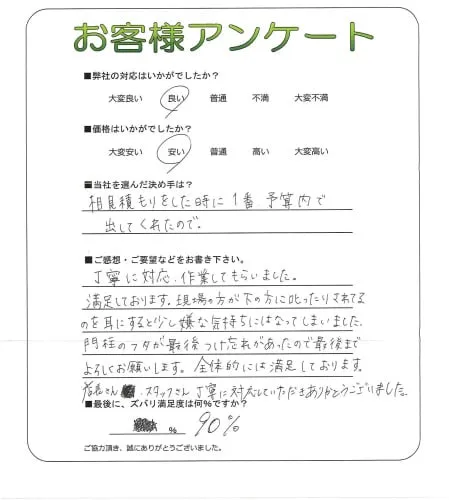 お客様アンケート
■弊社の対応はいかがでしたか？
大変良い 良い 普通 不満 大変不満
■価格はいかがでしたか？
大変安い 安い 普通 高い 大変高い
■当社を選んだ決め手は？
相見積もりをした時に1番 予算内で
出してくれたので。
■ご感想・ご要望などをお書き下さい。
丁寧に対応、作業してもらいました。
満足しております。現場の方が下の方に叱ったりされてる
のを耳にすると少し嫌な気持ちにはなってしまいました。
門柱のフタが最後つけ忘れがあったので最後まで
よろしくお願いします。全体的には満足しております。
店長さん、スタッフさん丁寧に対応していただきありがとうございました。
■最後に、ズバリ満足度は何%ですか？
% 90%
ご協力頂き、誠にありがとうございました。